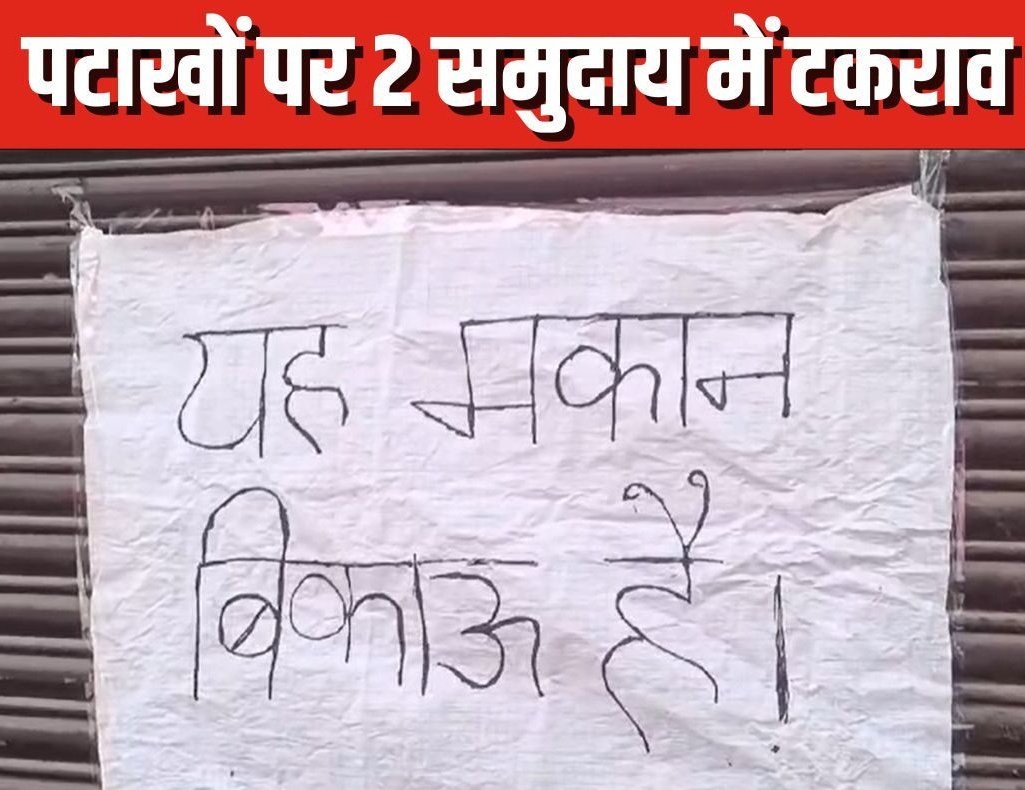 पटाखों पर 2 समुदाय में टकराव
यह मकान
बिकाऊ है।